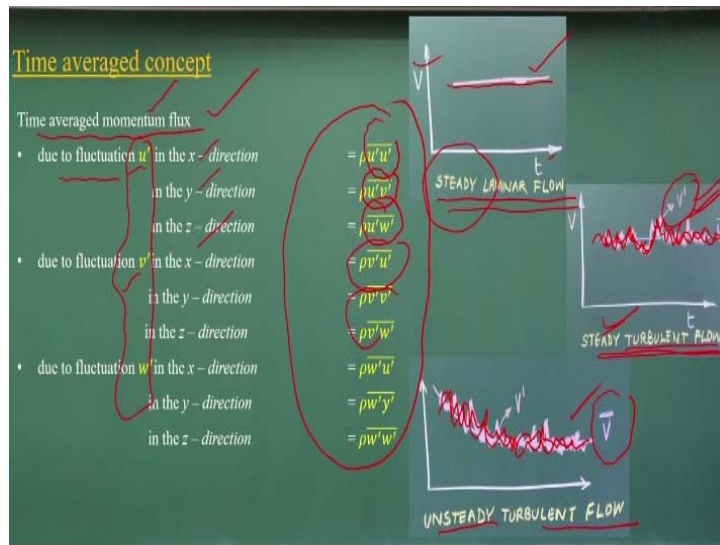 Time averaged concept
Time averaged momentum flux
• due to fluctuation u' in the x – direction = ρu̅'̅u̅'̅
in the y – direction = ρu̅'̅v̅'̅
in the z – direction = ρu̅'̅w̅'̅
• due to fluctuation v' in the x – direction = ρv̅'̅u̅'̅
in the y – direction = ρv̅'̅v̅'̅
in the z – direction = ρv̅'̅w̅'̅
• due to fluctuation w' in the x – direction = ρw̅'̅u̅'̅
in the y – direction = ρw̅'̅y̅'̅
in the z – direction = ρw̅'̅w̅'̅
V
t
STEADY LAMINAR FLOW
V
V'
t
STEADY TURBULENT FLOW
V'
V̅
UNSTEADY TURBULENT FLOW